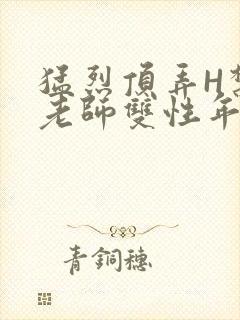 猛烈頂弄H
老師雙性年
青銅穗